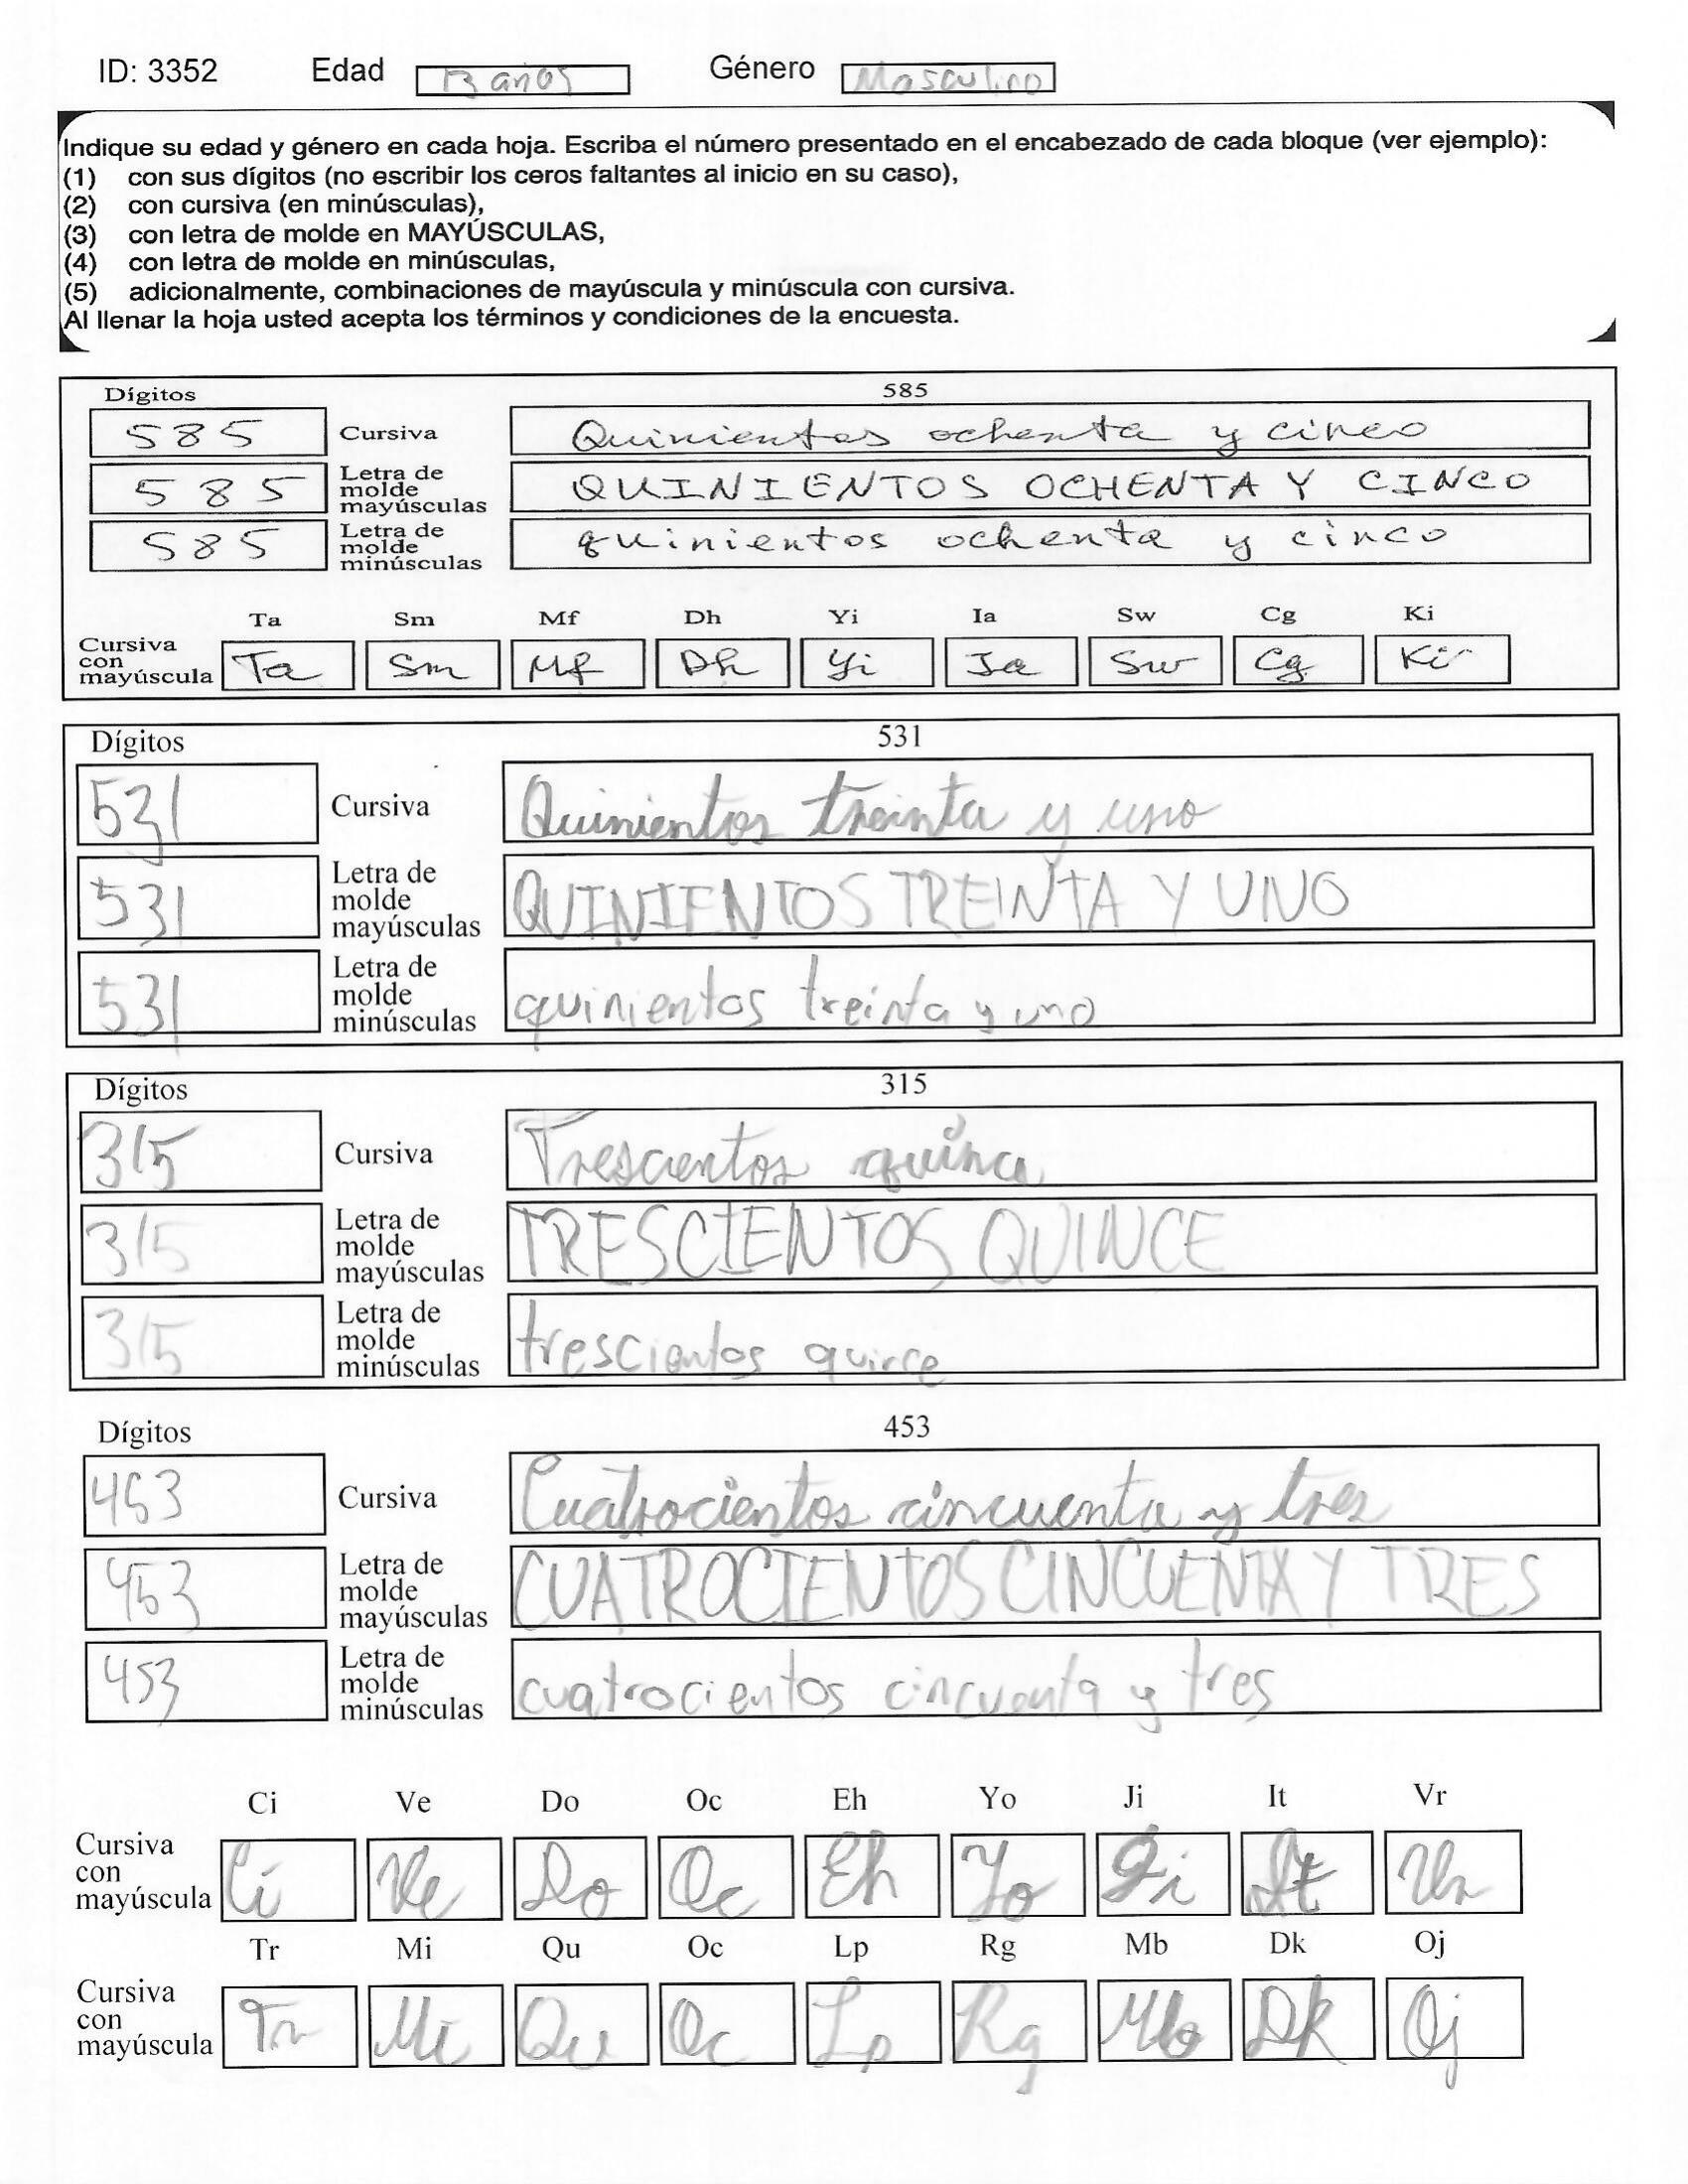 ID: 3352 Edad 13 años Género Masculino
Indique su edad y género en cada hoja. Escriba el número presentado en el encabezado de cada bloque (ver ejemplo):
(1) con sus dígitos (no escribir los ceros faltantes al inicio en su caso),
(2) con cursiva (en minúsculas),
(3) con letra de molde en MAYÚSCULAS,
(4) con letra de molde en minúsculas,
(5) adicionalmente, combinaciones de mayúscula y minúscula con cursiva.
Al llenar la hoja usted acepta los términos y condiciones de la encuesta.
Dígitos 585
585 Cursiva Quinientos ochenta y cinco
585 Letra de molde mayúsculas QUINIENTOS OCHENTA Y CINCO
585 Letra de molde minúsculas quinientos ochenta y cinco
Ta Sm Mf Dh Yi Ia Sw Cg Ki
Cursiva con mayúscula Ta Sm Mf Dh Yi Ia Sw Cg Ki
Dígitos 531
531 Cursiva Quinientos treinta y uno
531 Letra de molde mayúsculas QUINIENTOS TREINTA Y UNO
531 Letra de molde minúsculas quinientos treinta y uno
Dígitos 315
315 Cursiva Trescientos quince
315 Letra de molde mayúsculas TRESCIENTOS QUINCE
315 Letra de molde minúsculas trescientos quince
Dígitos 453
453 Cursiva Cuatrocientos cincuenta y tres
453 Letra de molde mayúsculas CUATROCIENTOS CINCUENTA Y TRES
453 Letra de molde minúsculas cuatrocientos cincuenta y tres
Ci Ve Do Oc Eh Yo Ji It Vr
Cursiva con mayúscula Ci Ve Do Oc Eh Yo Ji It Vr
Tr Mi Qu Oc Lp Rg Mb Dk Oj
Cursiva con mayúscula Tr Mi Qu Oc Lp Rg Mb Dk Oj